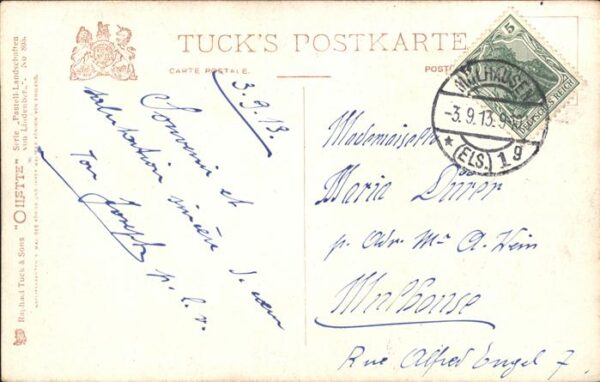 TUCK'S POSTKARTE
CARTE POSTALE.
3.9.13.
Souvenir et
salutation sincère d.
ton Joseph p. l. v.
Mademoiselle
Maria Dürer
p. Adr. Mr A. Hein
Mulhouse
Rue Alfred Engel 7
5
DEUTSCHES REICH
MÜLHAUSEN
-3.9.13.9
* (ELS.) 1 g
Raphael Tuck & Sons "OILETTE" Serie „Pastell-Landschaften
von Lindenborn." No 808.